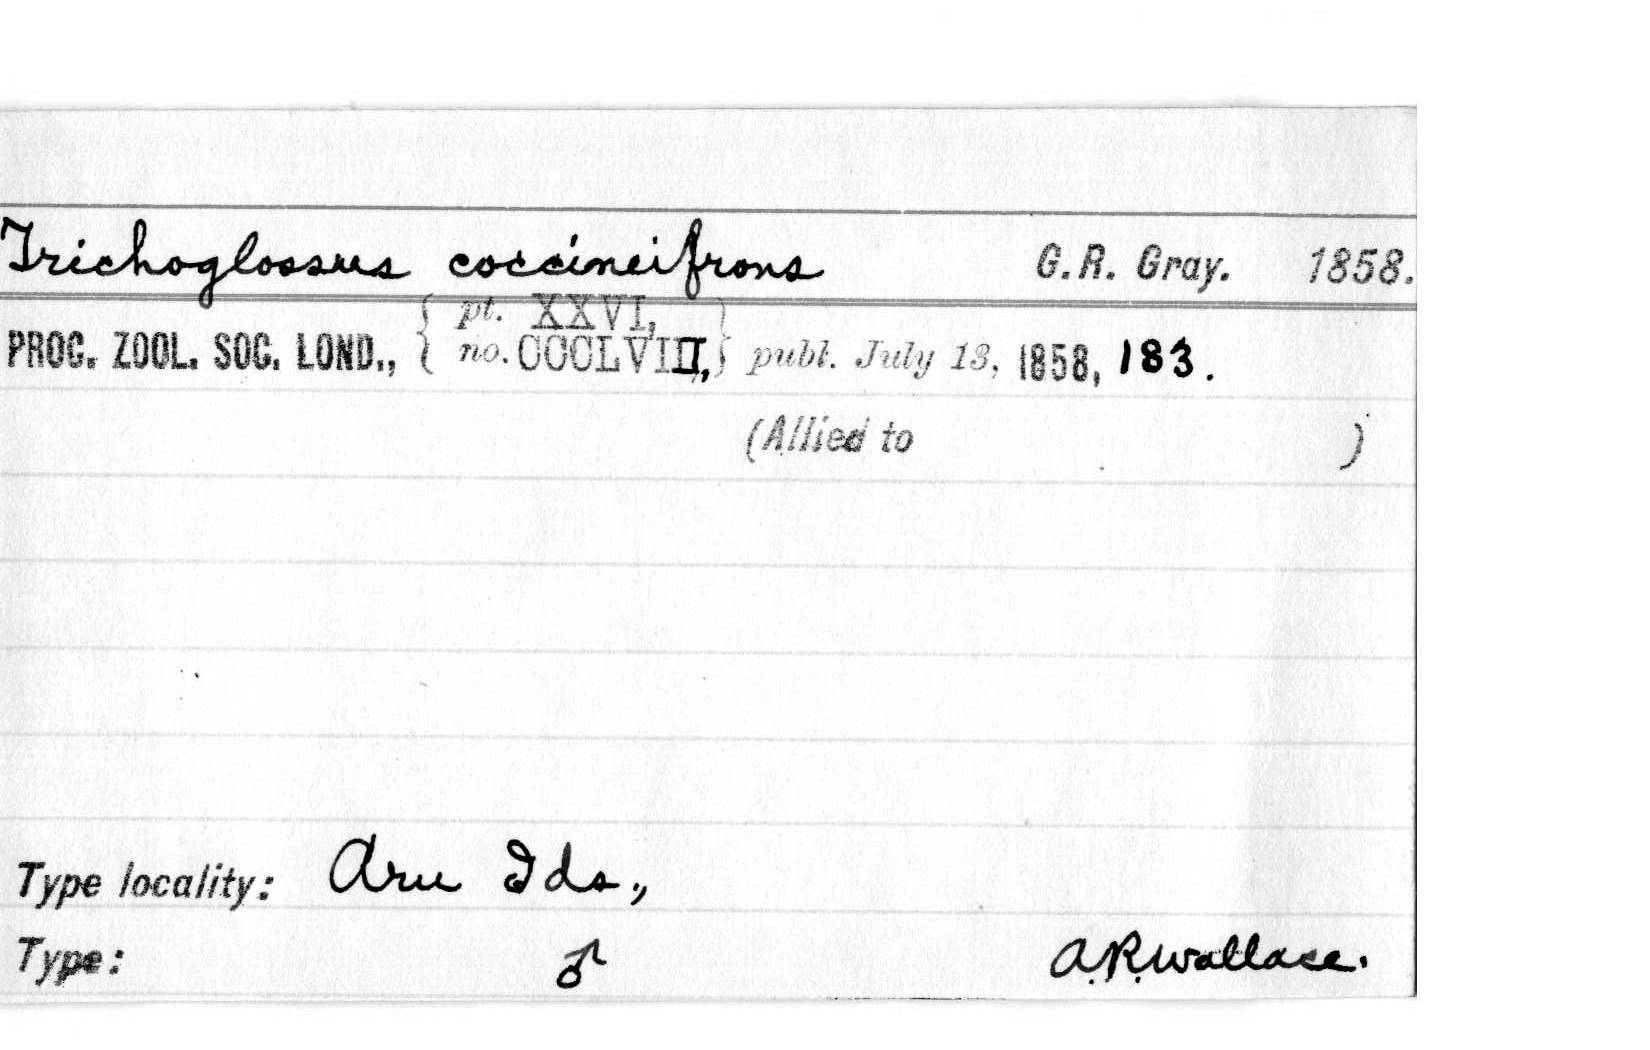 Trichoglossus coccineifrons G.R. Gray. 1858.
PROC. ZOOL. SOC. LOND., { pt. XXVI, no. CCCLVIII, } publ. July 13, 1858, 183.
(Allied to )
Type locality: Aru Ids.,
Type: ♂ A.R. Wallace.